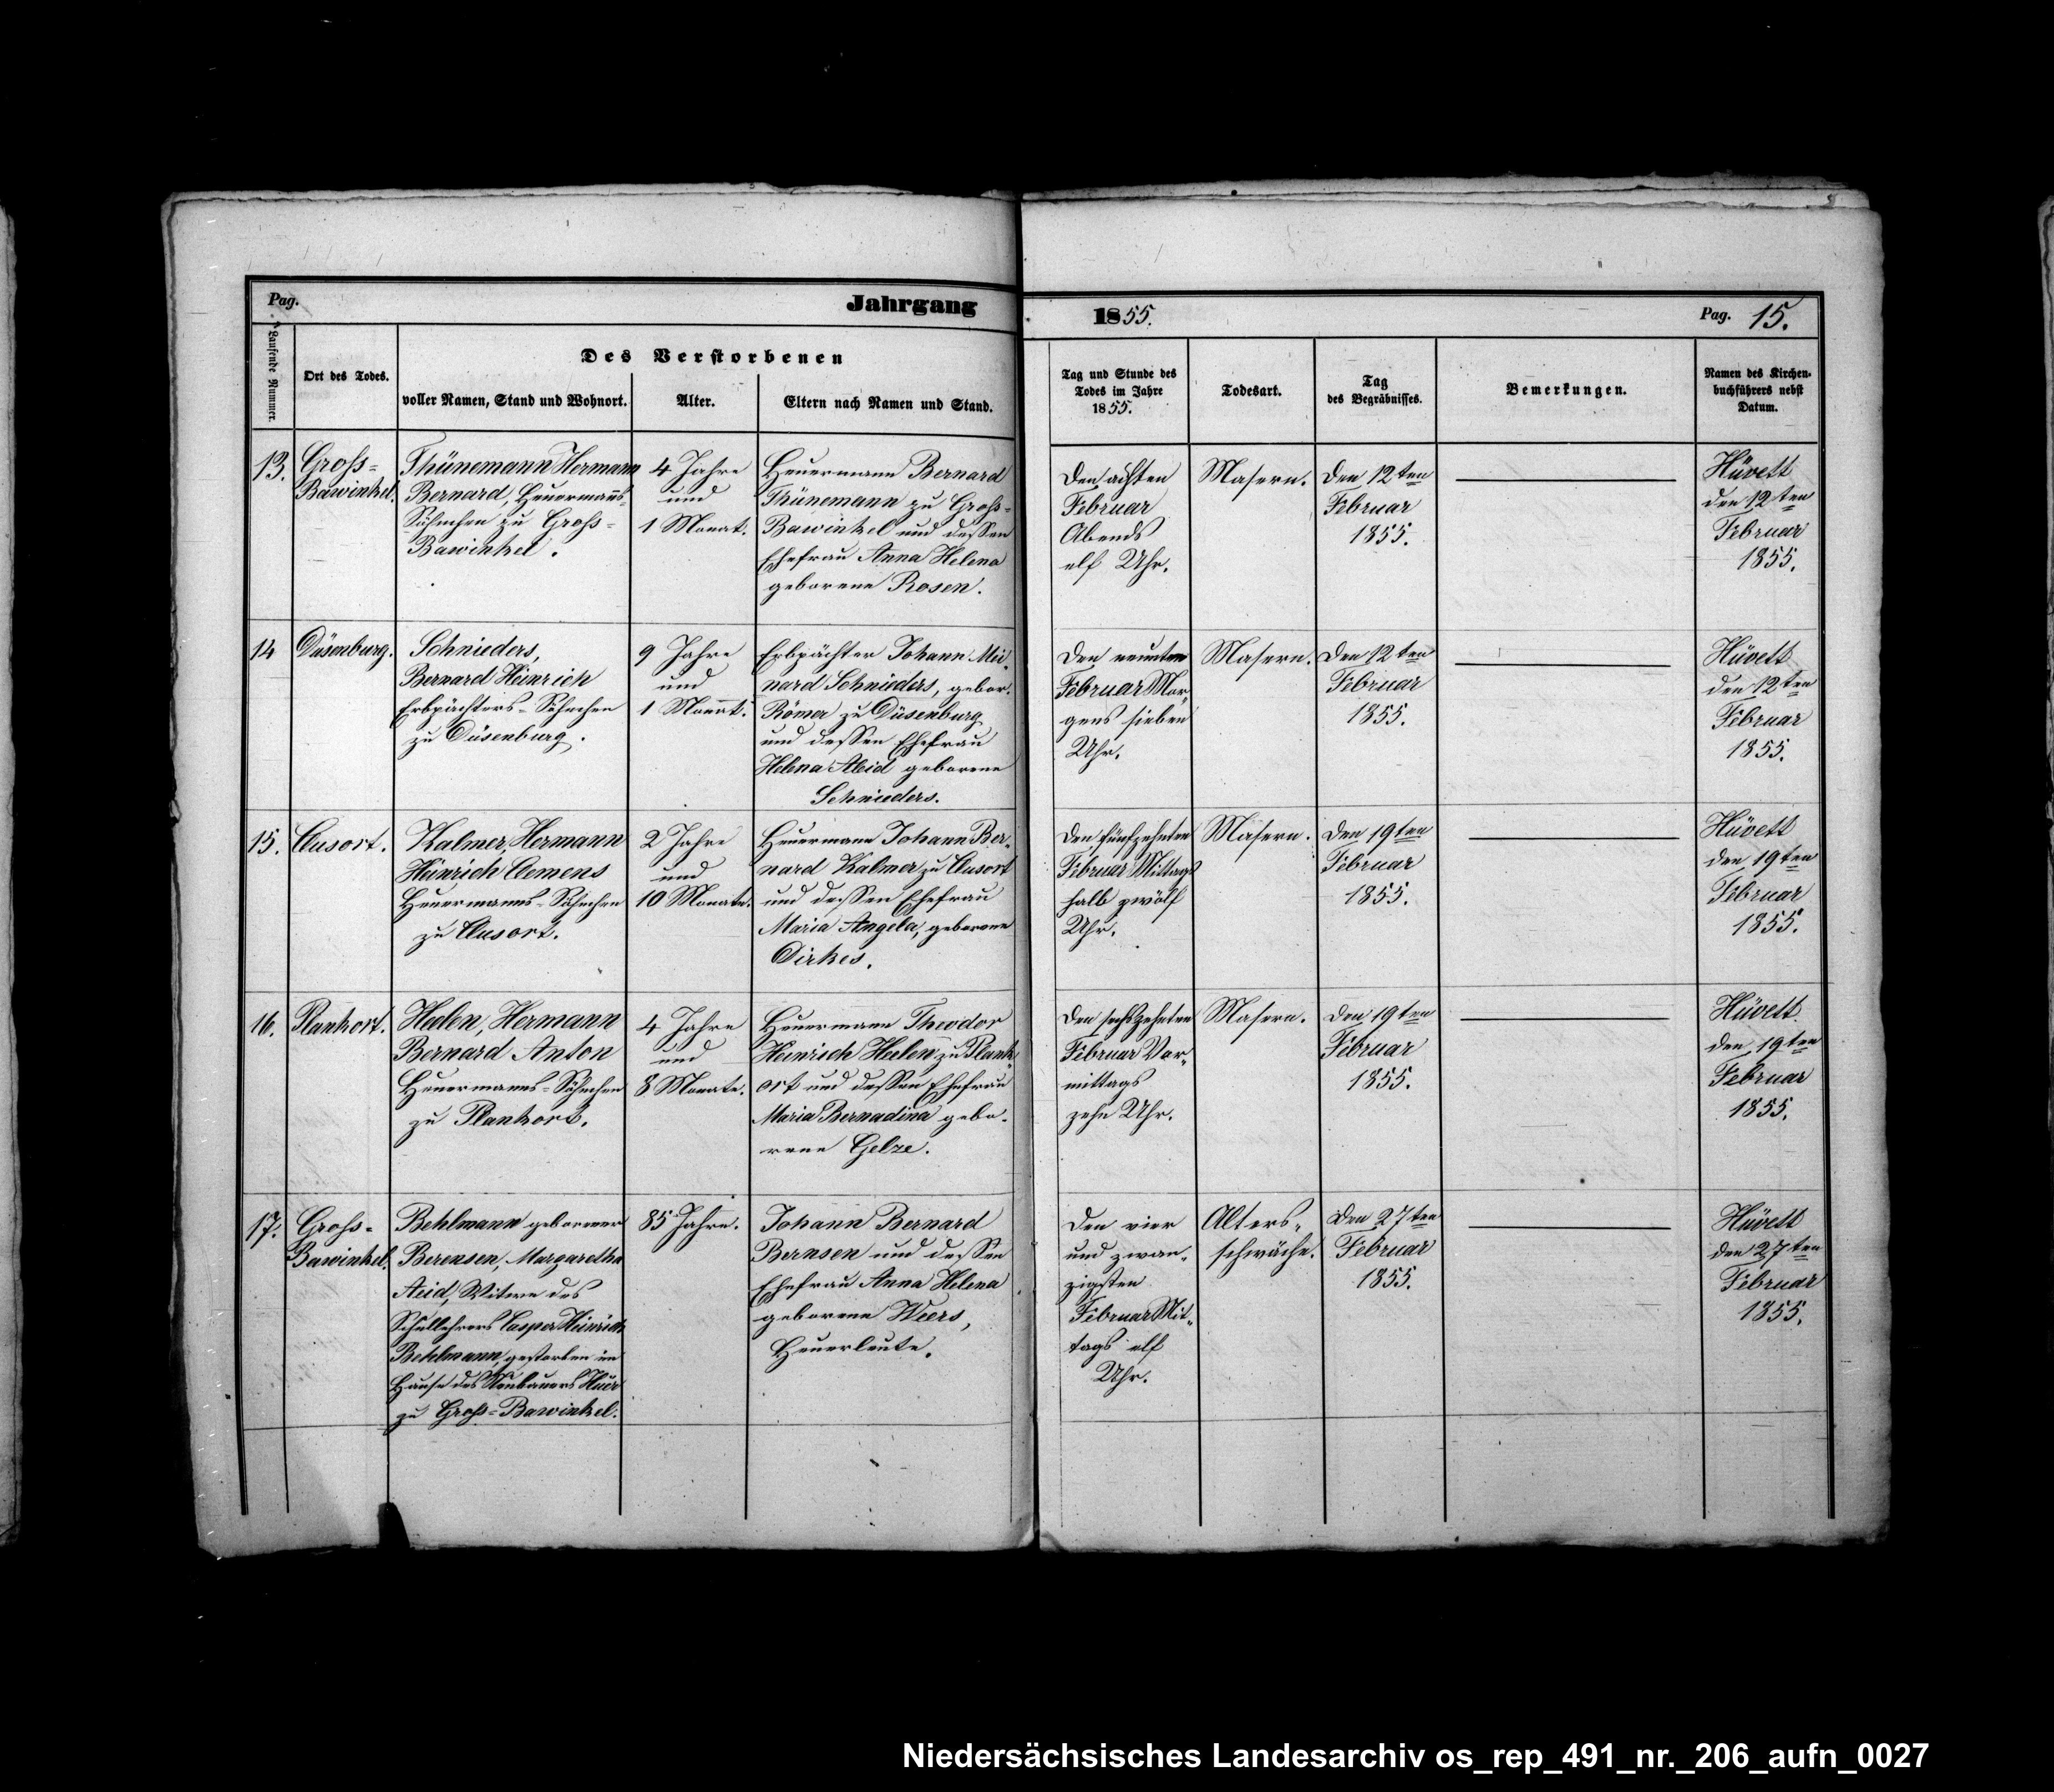 Pag.
Jahrgang
1855.
Pag. 15.
Laufende Nummer.
Ort des Todes.
Des Verstorbenen
voller Namen, Stand und Wohnort.
Alter.
Eltern nach Namen und Stand.
Tag und Stunde des
Todes im Jahre
1855.
Todesart.
Tag
des Begräbnisses.
Bemerkungen.
Namen des Kirchen-
buchführers nebst
Datum.
13.
Groß=
Bawinkel.
Thünemann Hermann
Bernard, Heuermanns
Söhnchen zu Groß=
Bawinkel.
4 Jahre
und
1 Monat.
Heuermann Bernard
Thünemann zu Groß=
Bawinkel und dessen
Ehefrau Anna Helena
geborene Rosen.
Den achten
Februar
Abends
elf Uhr.
Masern.
Den 12ten
Februar
1855.
Hüvett
den 12ten
Februar
1855.
14
Düsenburg.
Schnieders,
Bernard Heinrich
Erbpächters-Söhnchen
zu Düsenburg.
9 Jahre
und
1 Monat.
Erbpächter Johann
nard Schnieders, gebor.
Römer zu Düsenburg
und dessen Ehefrau
Helena Aleid geborene
Schnieders.
Den neunten
Februar Mor-
gens sieben
Uhr.
Masern.
Den 12ten
Februar
1855.
Hüvett
den 12ten
Februar
1855.
15.
Clusort.
Kalmer, Hermann
Heinrich Clemens
Heuermanns-Söhnchen
zu Clusort.
2 Jahre
und
10 Monate.
Heuermann Johann Ber-
nard Kalmer zu Clusort
und dessen Ehefrau
Maria Angela, geborene
Dirkes.
Den fünfzehnten
Februar Mittags
halb zwölf
Uhr.
Masern.
Den 19ten
Februar
1855.
Hüvett
den 19ten
Februar
1855.
16.
Plankort.
Heelen, Hermann
Bernard Anton
Heuermanns-Söhnchen
zu Plankort.
4 Jahre
und
8 Monate.
Heuermann Theodor
Heinrich Heelen zu Plank-
ort und dessen Ehefrau
Maria Bernadina gebo-
rene Gelze.
Den sechszehnten
Februar Vor-
mittags
zehn Uhr.
Masern.
Den 19ten
Februar
1855.
Hüvett
den 19ten
Februar
1855.
17.
Groß=
Bawinkel.
Behlmann geborener
Berensen, Margaretha
Aleid, Witwe des
Schullehrers Casper Heinrich
Behlmann, gestorben im
Hause des Neubauers
zu Groß=Bawinkel.
85 Jahre.
Johann Bernard
Bernsen und dessen
Ehefrau Anna Helena
geborene Weers,
Heuerleute.
Den vier
und zwan-
zigsten
Februar Mit-
tags elf
Uhr.
Alters-
schwäche.
Den 27ten
Februar
1855.
Hüvett
den 27ten
Februar
1855.
Niedersächsisches Landesarchiv os_rep_491_nr._206_aufn_0027